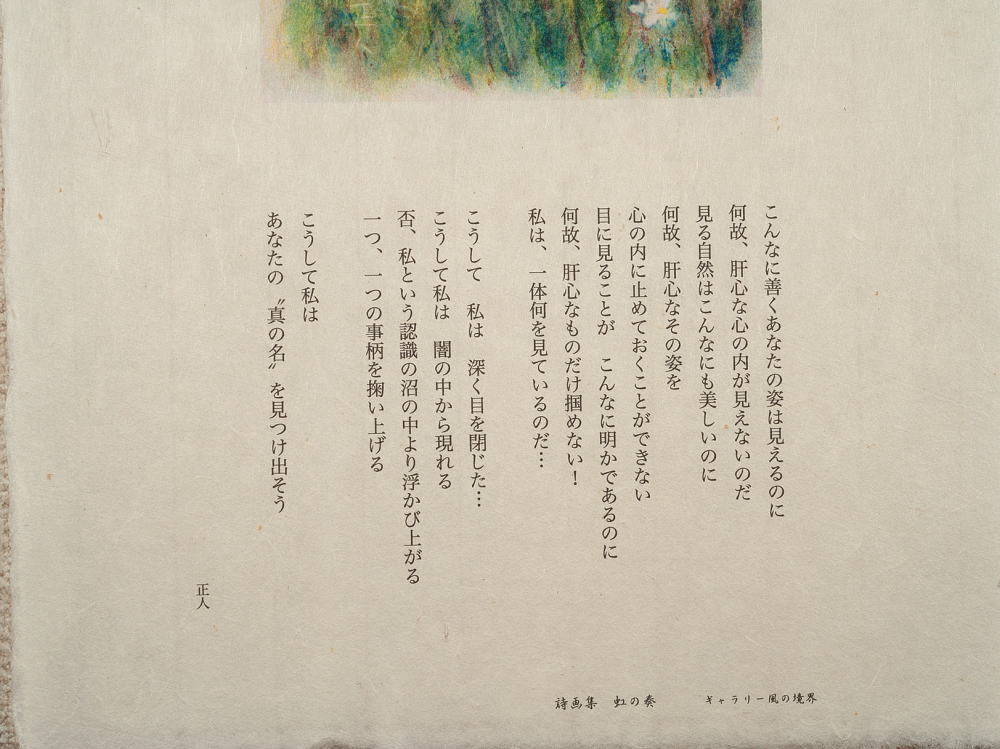 こんなに善くあなたの姿は見えるのに
何故、肝心な心の内が見えないのだ
見る自然はこんなにも美しいのに
何故、肝心なその姿を
心の内に止めておくことができない
目に見ることが　こんなに明かであるのに
何故、肝心なものだけ掴めない！
私は、一体何を見ているのだ…
こうして　私は　深く目を閉じた…
こうして私は　闇の中から現れる
否、私という認識の沼の中より浮かび上がる
一つ、一つの事柄を掬い上げる
こうして私は
あなたの〝真の名〟を見つけ出そう
正人
詩画集　虹の奏　ギャラリー風の境界